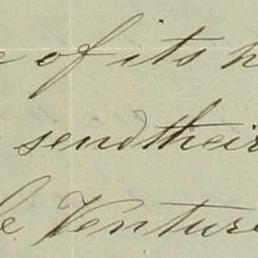 of its
send their
Venture